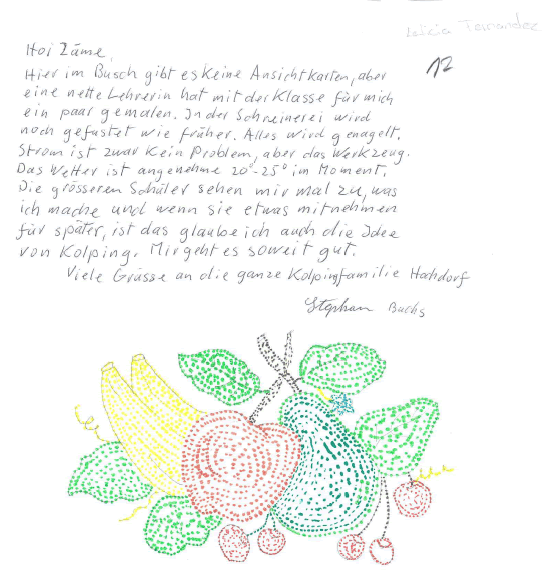 Leticia Fernandez
12
Hoi Zäme,
Hier im Busch gibt es keine Ansichtkarten, aber
eine nette Lehrerin hat mit der Klasse für mich
ein paar gemalen. In der Schreinerei wird
noch gefustet wie früher. Alles wird genagelt.
Strom ist zwar kein Problem, aber das Werkzeug.
Das Wetter ist angenehme 20°-25° im Moment.
Die grösseren Schüler sehen mir mal zu, was
ich mache und wenn sie etwas mitnehmen
für später, ist das glaube ich auch die Idee
von Kolping. Mir geht es soweit gut.
Viele Grüsse an die ganze Kolpingfamilie Hochdorf
Stephan Buchs